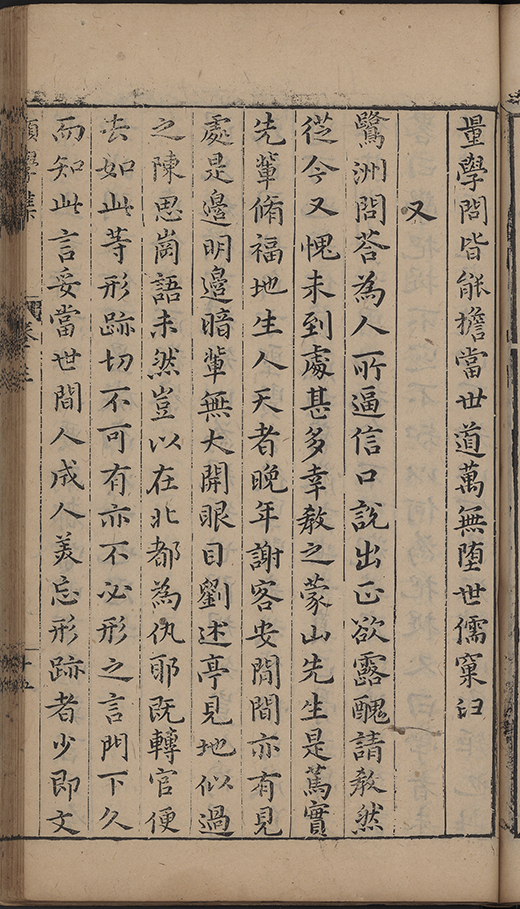 量學問皆能擔當世道萬無堕世儒窠臼
又
鷺洲問荅為人所逼信口說出正欲露醜請教然
從今又愧未到處甚多幸教之蒙山先生是篤實
先軰脩福地生人天者晚年謝客安閒間亦有見
處是邉明邉暗軰無大開眼目劉述亭見地似過
之陳思崗語未然豈以在北都為仇耶既轉官便
去如此等形跡切不可有亦不必形之言門下久
而知此言妥當世間人成人美忘形跡者少即文
願學集
卷之三
十五